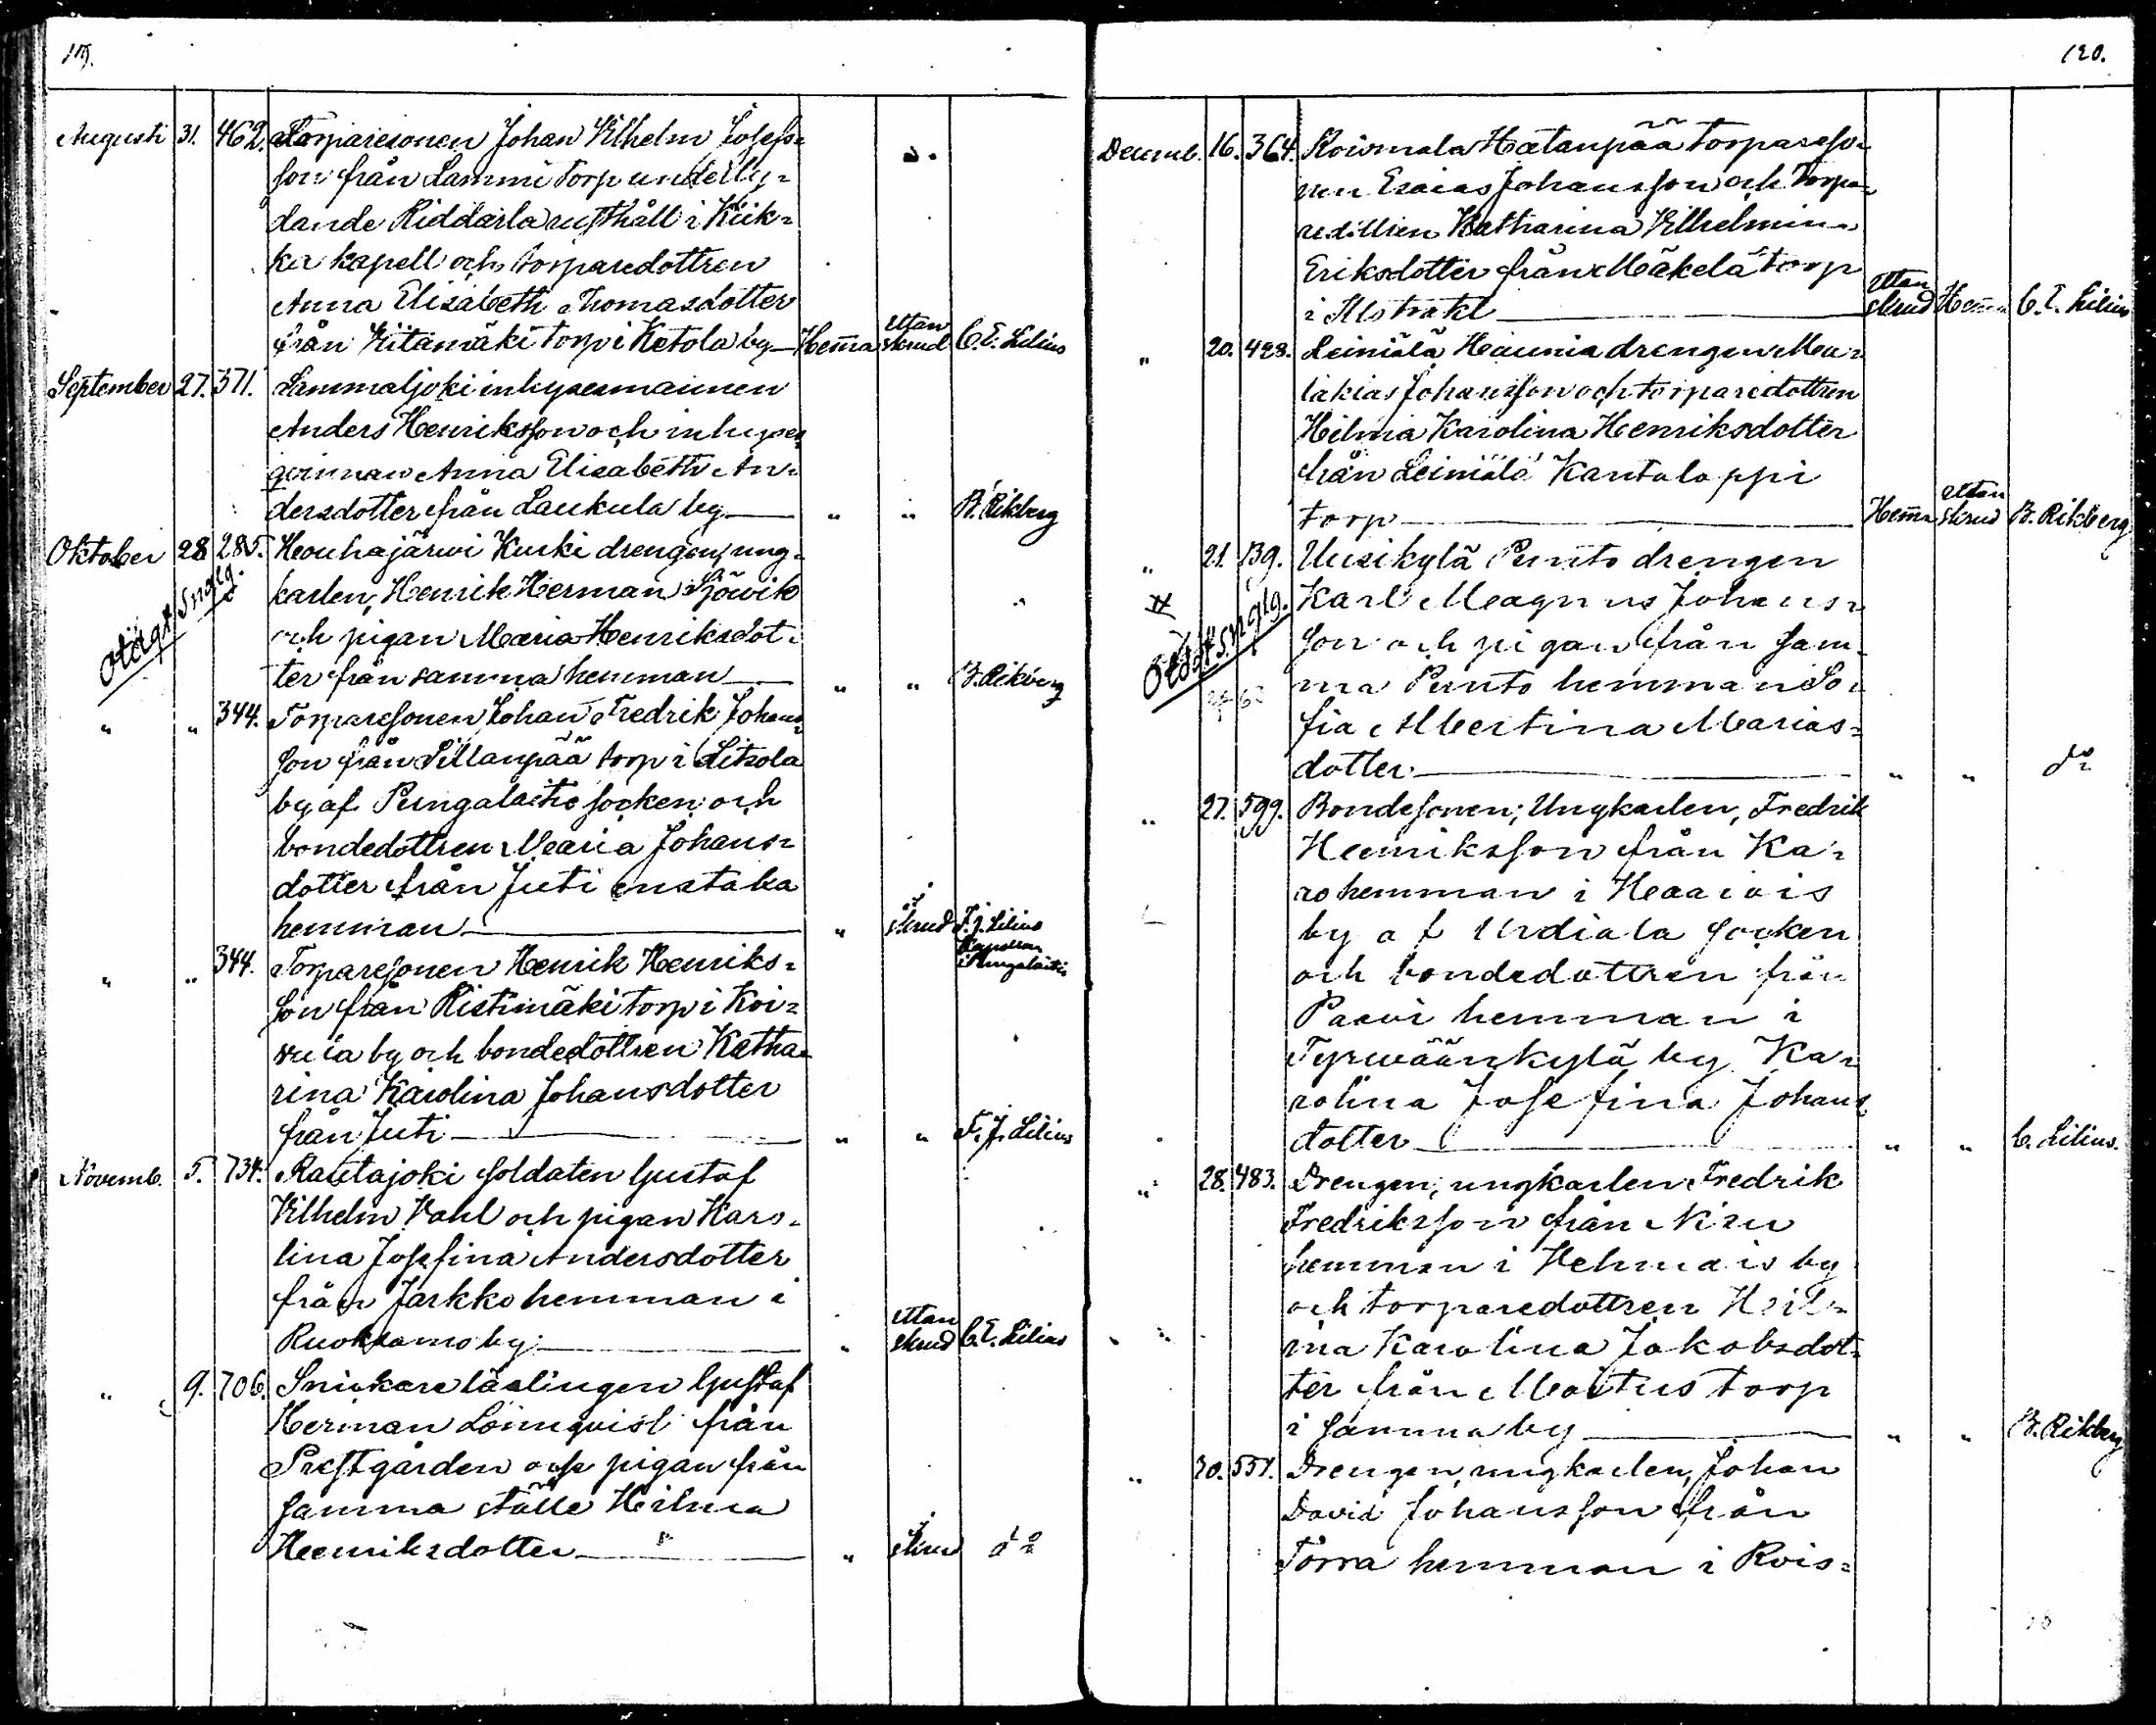 119.
Augusti 31. 462. Torparesonen Johan Wilhelm Josefs-
son från Lammi Torp underly-
dande Riddarla rusthåll i Kiik-
ka kapell och torparedottren
Anna Elisabeth Thomasdotter
från Yitämäki torp i Ketola by — Hemma utan skrud C. E. Lilius
September 27. 371. Sammaljoki inhysesmannen
Anders Henriksson och inhyses
qvinnan Anna Elisabeth An-
dersdotter från Laukula by — " " B. Rikberg
Oktober 28 285. Houhajärwi Kuski drengen, ung-
karlen, Henrik Herman Sjöwik
och pigan Maria Henriksdot-
ter från samma hemman — " " B. Rikberg
Otägt Snglg.
" " 344. Torparesonen Johan Fredrik Johans-
son från Sillanpää torp i Liitsola
by af Pungalaitio socken och
bondedottren Maria Johans-
dotter från Juti enstaka
hemman — " i skrud F. J. Lilius
Kapellan
i Pungalaitio
" " 344. Torparesonen Henrik Henriks-
son från Ristimäki torp i Koi-
by och bondedottren Katha-
rina Karolina Johansdotter
från Juti — " " F. J. Lilius
Novemb. 5. 734. Rautajoki soldaten Gustaf
Wilhelm Wahl och pigan Karo-
lina Josefina Andersdotter
från Jarkko hemman i
Ruoksamo by — " utan skrud C. E. Lilius
" 9. 706. Snickare lärlingen Gustaf
Herman Lönnqvist från
Prestgården och pigan från
samma ställe Hilma
Henriksdotter — " i skrud do
120.
Decemb. 16. 364. Roismala Hatanpää torpareso-
nen Esaias Johansson och Torpa-
redottren Katharina Wilhelmina
Eriksdotter från Mäkelä torp
i Illstrakt — utan skrud Hemma C. E. Lilius
" 20. 428. Leiniälä Haunia drengen Ma-
lakias Johansson och torparedottren
Hilma Karolina Henriksdotter
från Leiniälä Kantaloppi
torp — Hemma utan skrud B. Rikberg
" 21. 139. Uusikylä Punto drengen
Karl Magnus Johans-
son och pigan från sam-
ma Punto hemman So-
fia Albertina Marias-
dotter — " " do
Otägt Snglg.
" 27. 599. Bondesonen, Ungkarlen, Fredrik
Henriksson från Ka-
ro hemman i
by af Urdiala socken
och bondedottren från
Paavi hemman i
Tyrwäänkylä by Ka-
rolina Josefina Johans
dotter — " " C. Lilius.
" 28. 483. Drengen, ungkarlen Fredrik
Fredriksson från
hemman i Kehmais by
och torparedottren Hil-
ma Karolina Jakobsdot-
ter från Maitus torp
i samma by — " " B. Rikberg
" 30. 551. Drengen, ungkarlen, Johan
David Johansson från
Torra hemman i Rois-